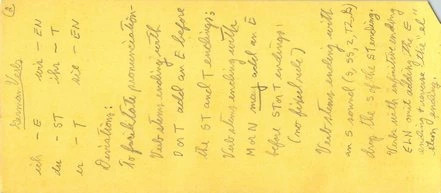 ②
German Verbs
ich - E wir - EN
du - ST ihr - T
er - T sie - EN
Deviations:
To facilitate pronunciation -
Verb stems ending with
D or T add an E before
the ST and T endings;
Verb stems ending with
M or N may add an E
before ST or T endings!
(no fixed rule)
Verb stems ending with
an S sound (S, SS, Z, TZ, ß)
drop the S of the ST ending.
Verbs with infinitive ending
ELN omit adding the E
ending reverse the "el"
I ending